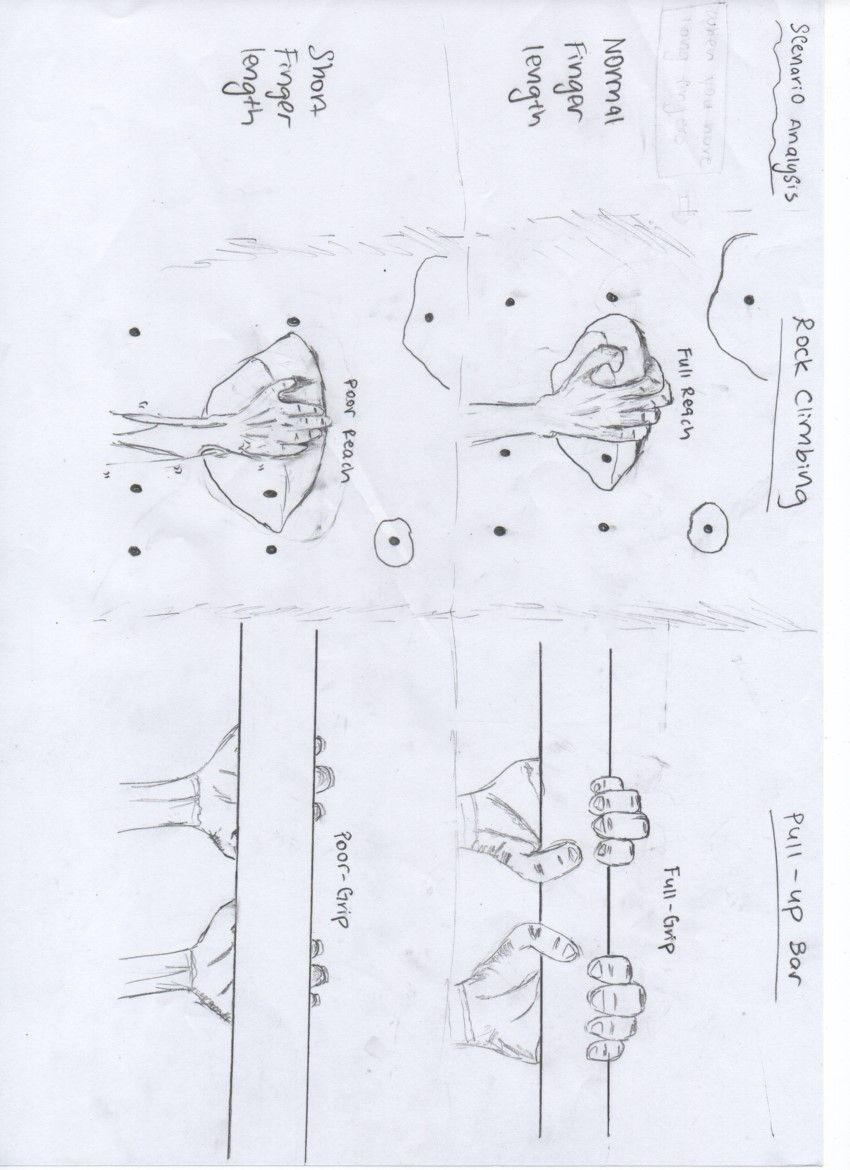 Scenario Analysis
Rock Climbing
Pull-up Bar
Normal
Finger
length
Full Reach
Full-Grip
Short
Finger
length
Poor Reach
Poor-Grip